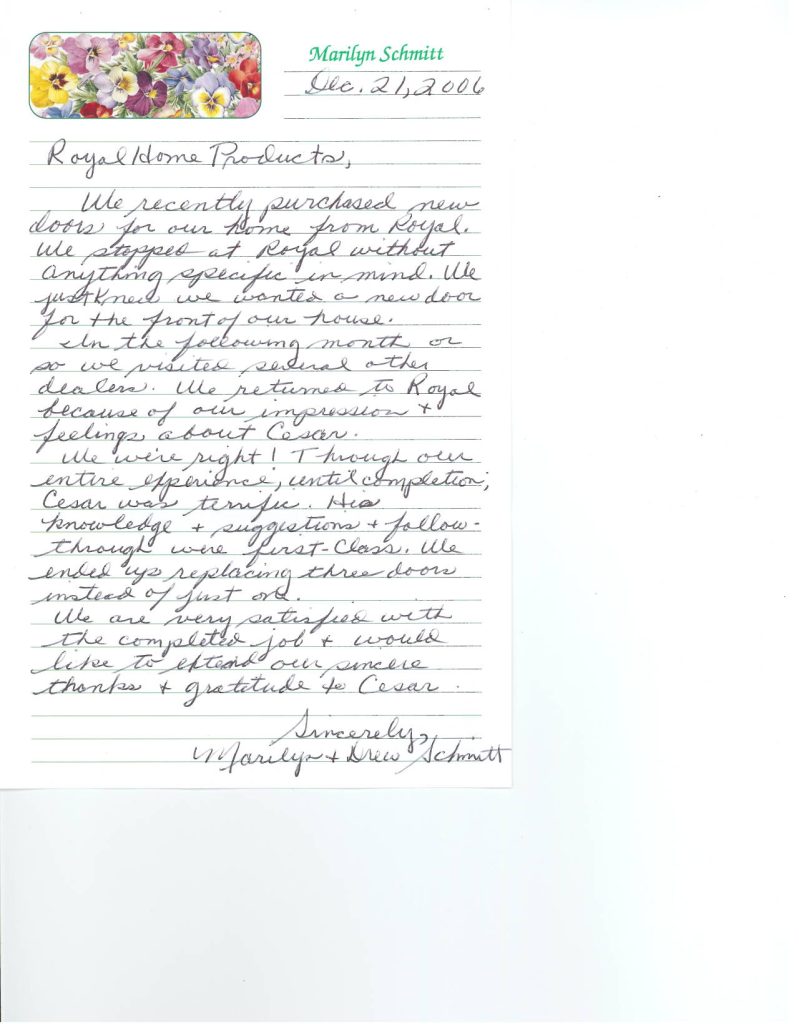 Marilyn Schmitt
Dec. 21, 2006
Royal Home Products,
We recently purchased new
doors for our home from Royal.
We stopped at Royal without
anything specific in mind. We
just knew we wanted a new door
for the front of our house.
In the following month or
so we visited several other
dealers. We returned to Royal
because of our impression +
feelings about Cesar.
We were right! Through our
entire experience, until completion,
Cesar was terrific. His
knowledge + suggestions + follow-
through were first-Class. We
ended up replacing three doors
instead of just one.
We are very satisfied with
the completed job + would
like to extend our sincere
thanks + gratitude to Cesar.
Sincerely,
Marilyn + Drew Schmitt